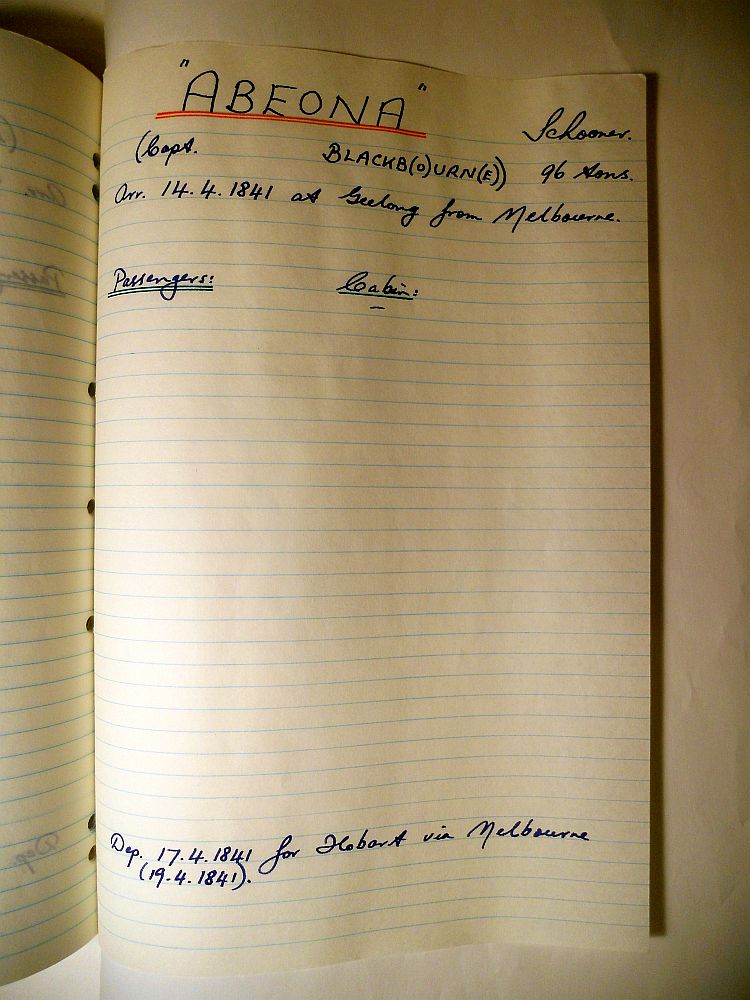 "ABEONA"
Schooner.
(Capt. BLACKB(O)URN(E)) 96 tons.
Arr. 14.4.1841 at Geelong from Melbourne.
Passengers: Cabin:
Dep. 17.4.1841 for Hobart via Melbourne
(19.4.1841).